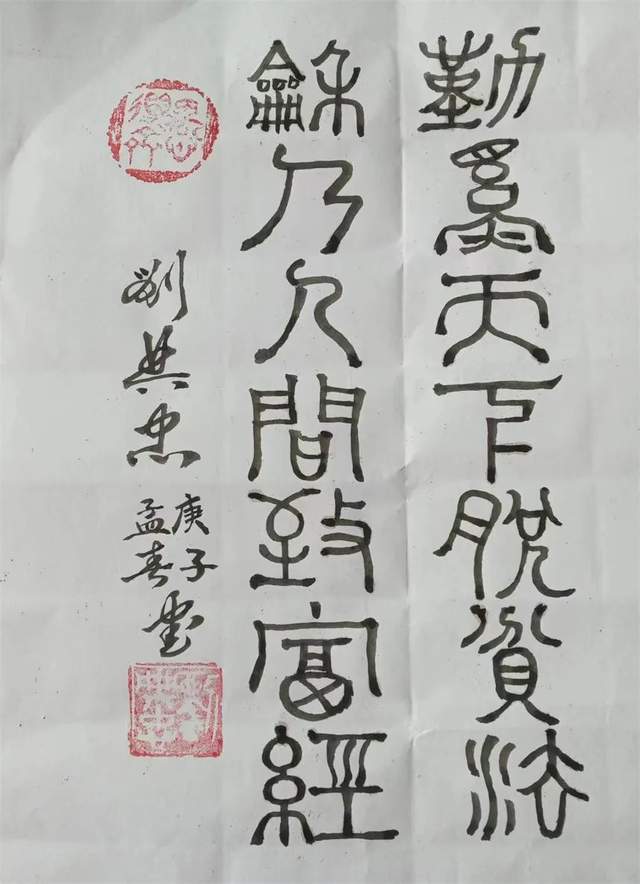 勤爲天下脱貧法
龢乃人間致富經
劉其忠
庚子
孟春書